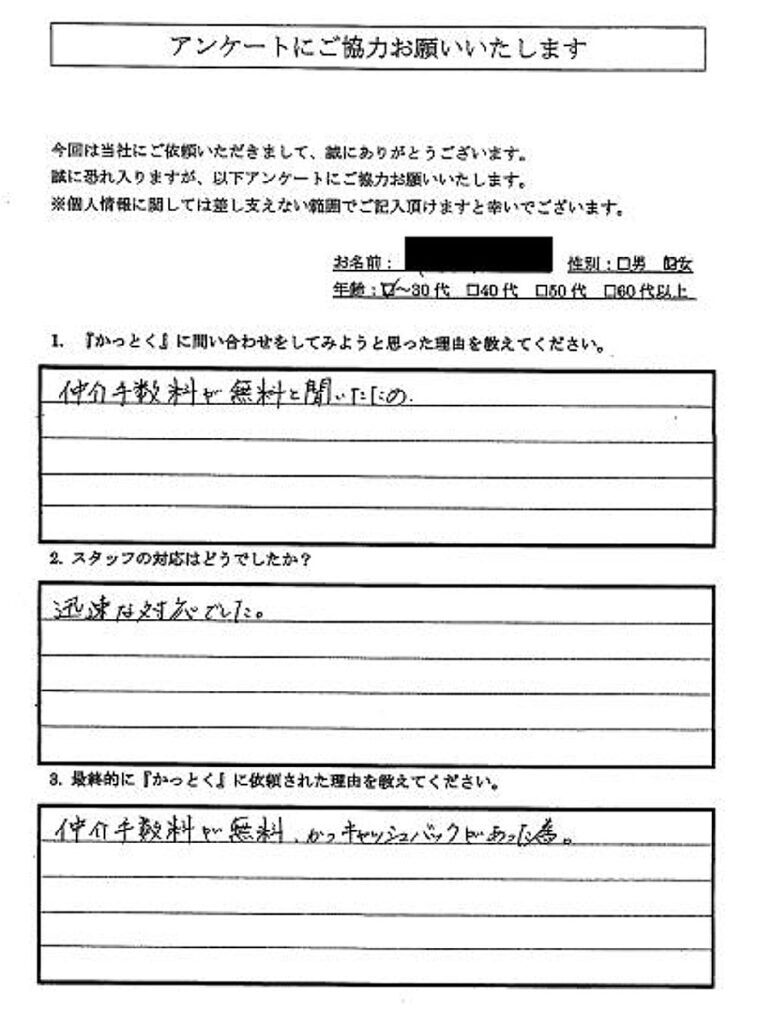 アンケートにご協力お願いいたします
今回は当社にご依頼いただきまして、誠にありがとうございます。
誠に恐れ入りますが、以下アンケートにご協力お願いいたします。
※個人情報に関しては差し支えない範囲でご記入頂けますと幸いでございます。
お名前： 性別：□男 ☑女
年齢：☑～30代 □40代 □50代 □60代以上
1. 『かっとく』に問い合わせをしてみようと思った理由を教えてください。
仲介手数料が無料と聞いたの
2. スタッフの対応はどうでしたか？
迅速な対応でした。
3. 最終的に『かっとく』に依頼された理由を教えてください。
仲介手数料が無料、かつキャッシュバックがあった為。